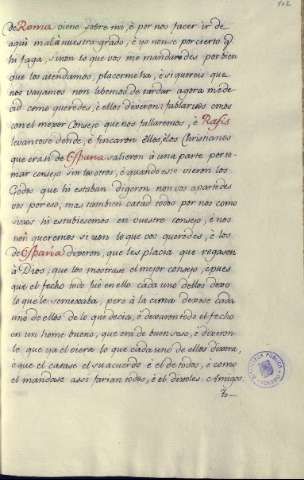 102
de Roma viene sobre nos, è por nos facer ir de
aqui mal à nuestro grado, è yo non se por cierto q
hi faga, si non lo que vos me mandaredes por bien
que los atendamos, placermeha, è si quereis que
nos vayamos non habemos de tardar agora me de
cid como queredes, è ellos dixeron: fablarsos enos
con el mexor Consejo que nos fallaremos, è Rasis
levantose dende, è fincaron ellos, è los Christianos
que eran de España salieron à una parte por to-
mar consejo sin los otros, è quando esto vieron los
Godos que hi estaban digeron non vos apartedes
vos por eso, mas tambien catad todos por nos como
si vos hi estubiesemos en vuestro consejo, è nos
non queremos si non lo que vos queredes, è los
de España dixeron, que les placia que rogasen
à Dios, que los mostrase el mejor consejo, è pues
que el fecho todo fue en ello cada uno dellos dixo
lo que le semexaba, pero à la cima dexose cada
uno de ellos de lo que decia, è dexaron todo el fecho
en un home bueno, que era de buen seso, è dixeron
le que ya el viera lo que cada uno de ellos dixera,
è que el catase el su acuerdo è el de todos, è como
el mandase assi farian todos, è el dixoles Amigos
Yo